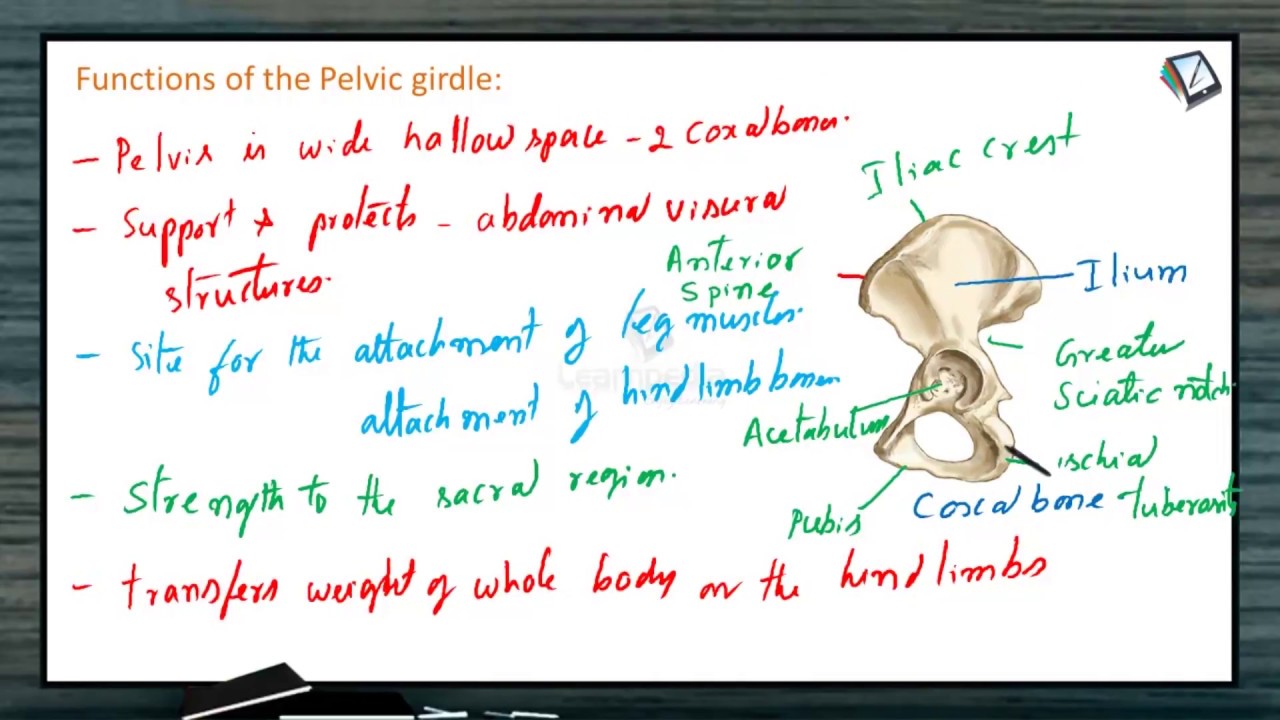 Functions of the Pelvic girdle:
- Pelvis is wide hallow space - 2 coxal bones.
- Support & protects - abdominal viscera
structures.
- Site for the attachment of leg muscles.
attachment of hindlimb bones
- Strength to the sacral region.
- transfers weight of whole body on the hind limbs
Iliac crest
Anterior
spine
Ilium
Greater
Sciatic notch
Acetabulum
ischial
tuberosity
Pubis
Coxal bone
Learnpedia